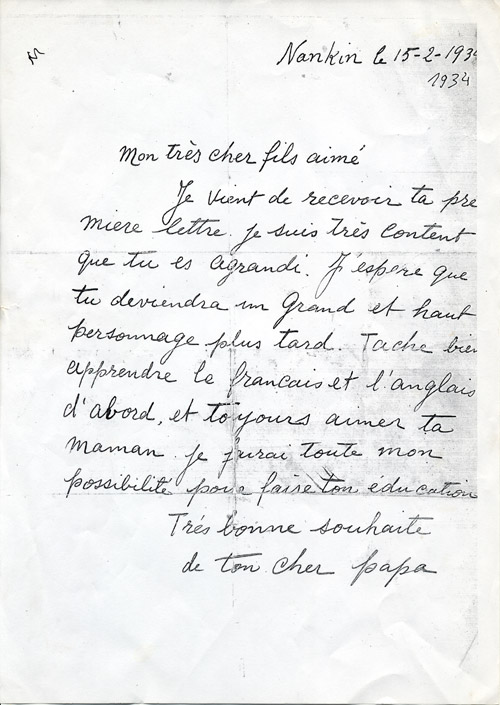 Nankin le 15-2-193
1934
Mon très cher fils aimé
Je vient de recevoir ta pre
miere lettre. je suis très content
que tu es agrandi. J'espere que
tu deviendra un Grand et haut
personnage plus tard. Tache bien
apprendre le francais et l'anglais
d'abord, et toujours aimer ta
maman. je toute mon
possibilité pour faire ton éducation
Trés bonne souhaite
de ton cher papa